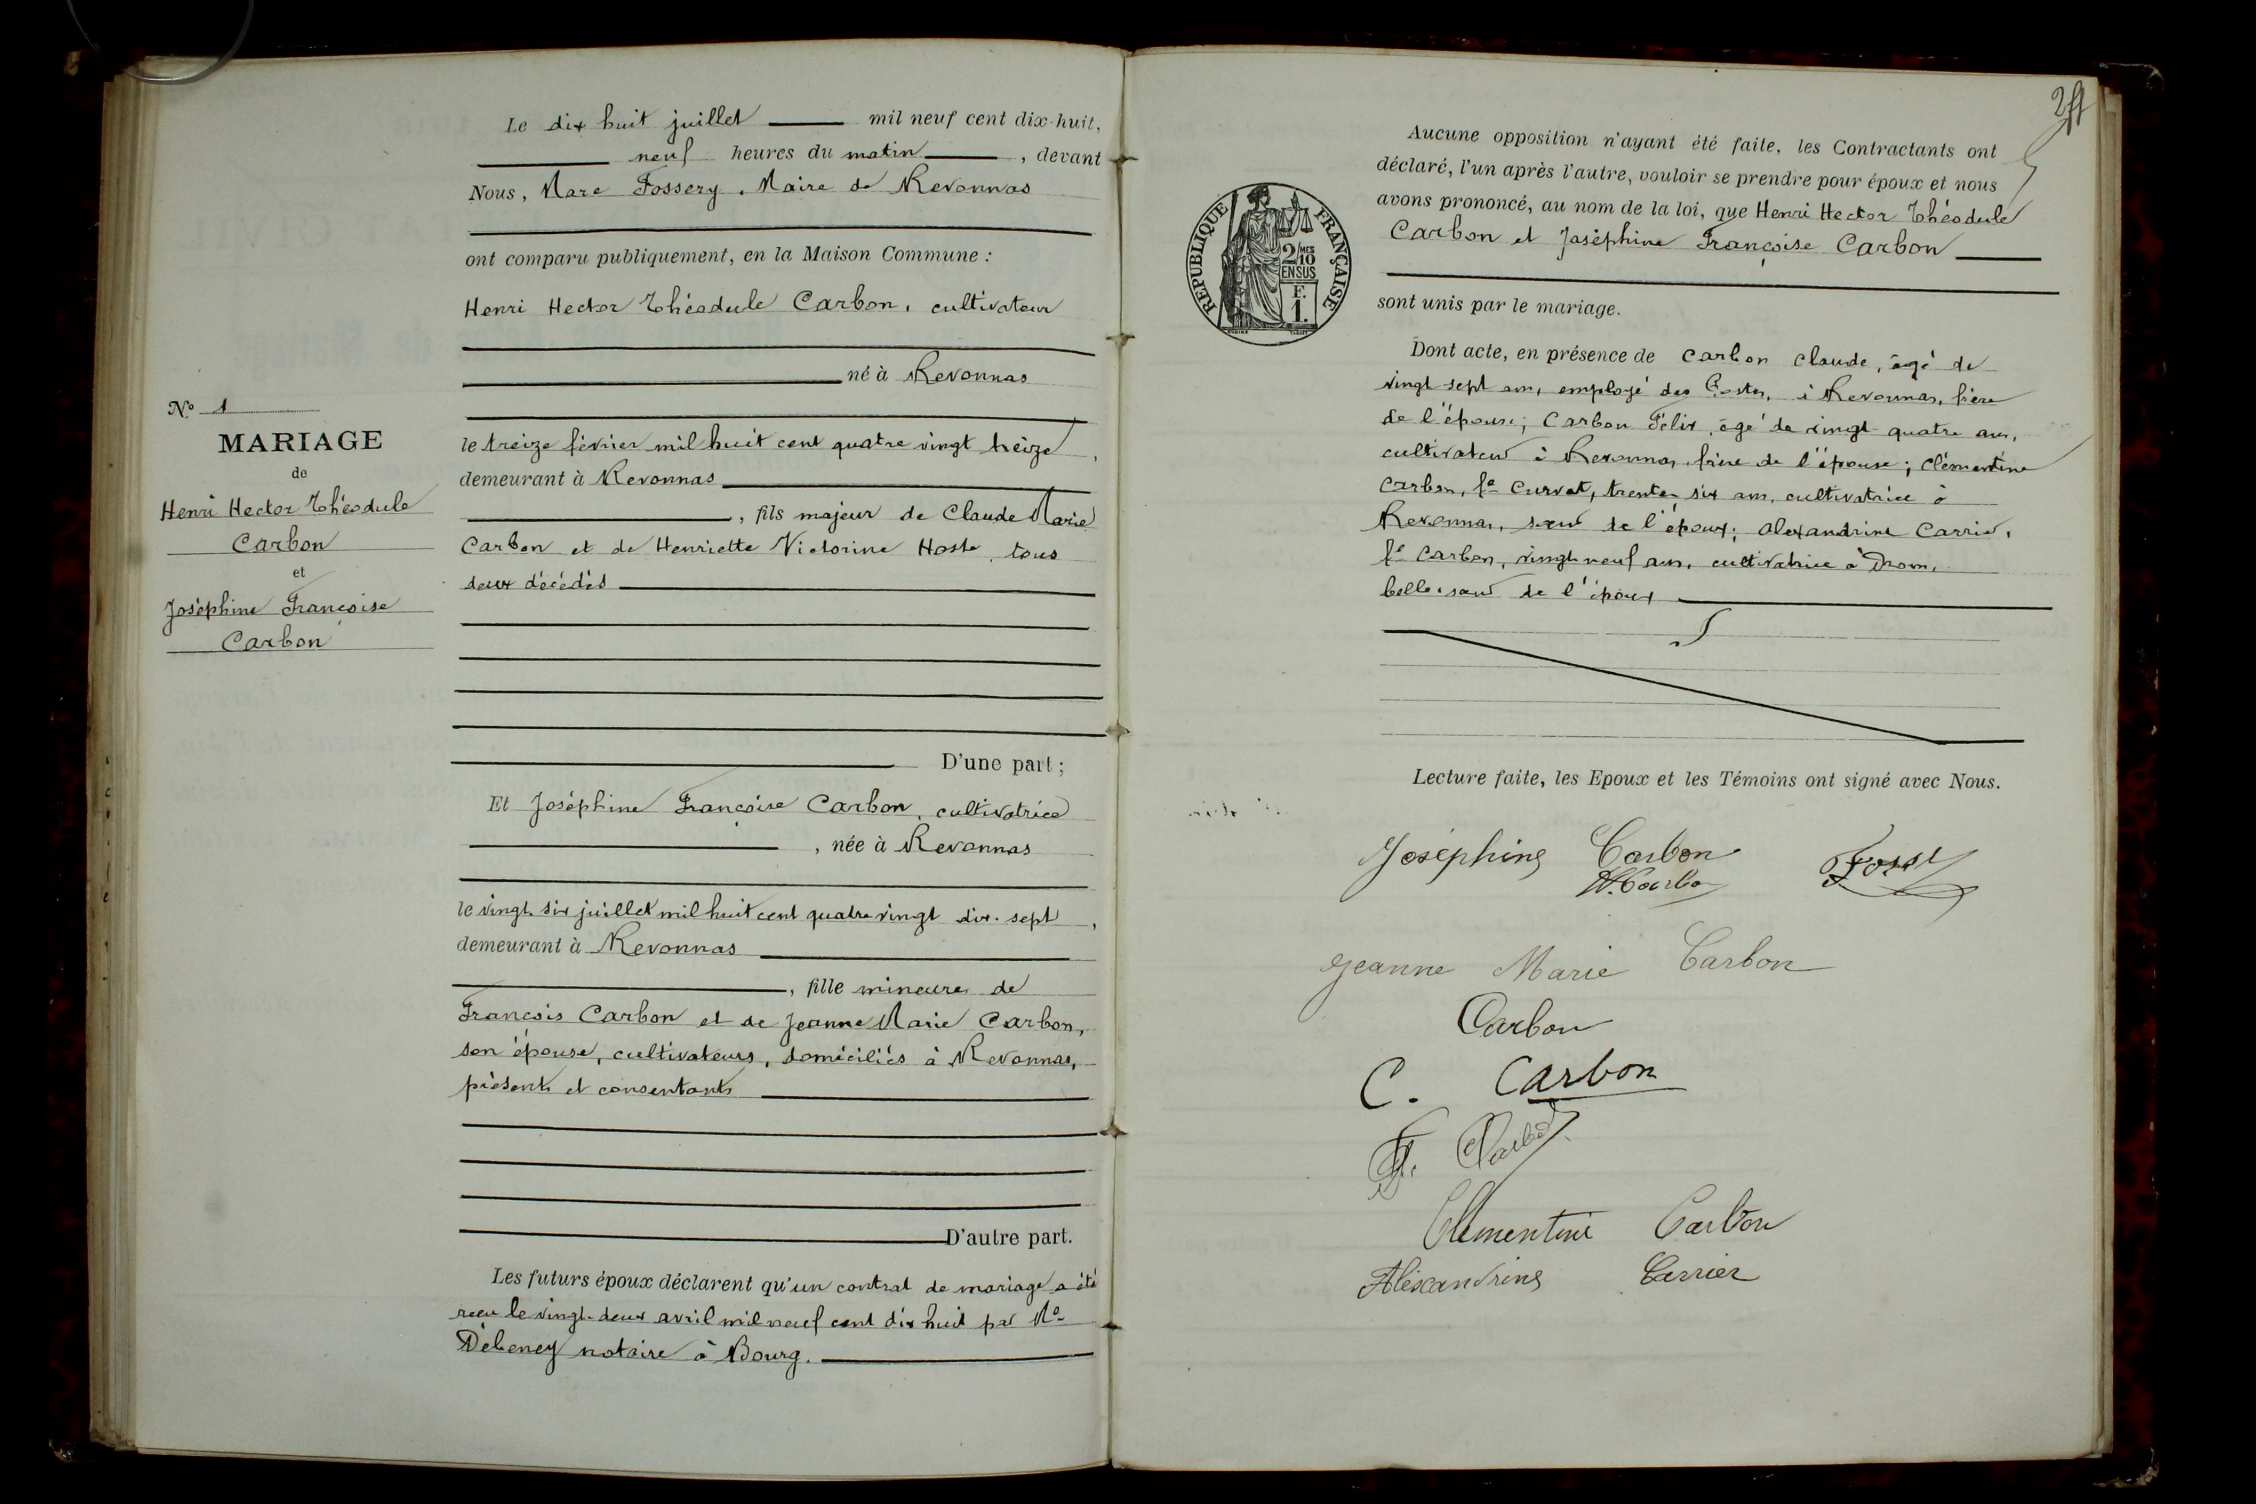 Le dix huit juillet mil neuf cent dix-huit,
neuf heures du matin, devant
Nous, Marc Fossery, Maire de Revonnas
ont comparu publiquement, en la Maison Commune :
Henri Hector Théodule Carbon, cultivateur
né à Revonnas
le treize février mil huit cent quatre vingt treize,
demeurant à Revonnas
, fils majeur de Claude Marie
Carbon et de Henriette Victorine Hoste, tous
deux décédés
D'une part ;
Et Joséphine Françoise Carbon, cultivatrice
, née à Revonnas
le vingt six juillet mil huit cent quatre vingt dix-sept,
demeurant à Revonnas
, fille mineure de
François Carbon et de Jeanne Marie Carbon,
son épouse, cultivateurs, domiciliés à Revonnas,
présents et consentants
D'autre part.
Les futurs époux déclarent qu'un contrat de mariage a été
reçu le vingt-deux avril mil neuf cent dix huit par Me
Débeney notaire à Bourg.
No 1
MARIAGE
de
Henri Hector Théodule
Carbon
et
Joséphine Françoise
Carbon
Aucune opposition n'ayant été faite, les Contractants ont
déclaré, l'un après l'autre, vouloir se prendre pour époux et nous
avons prononcé, au nom de la loi, que Henri Hector Théodule
Carbon et Joséphine Françoise Carbon
sont unis par le mariage.
RÉPUBLIQUE FRANÇAISE
2/10 MES
EN SUS
F.
1.
Dont acte, en présence de Carbon Claude, âgé de
vingt sept ans, employé des Postes, à Revonnas, frère
de l'épouse; Carbon Félix, âgé de vingt quatre ans,
cultivateur à Revonnas, frère de l'épouse; Clémentine
Carbon, fe Curvat, trente six ans, cultivatrice à
Revonnas, sœur de l'époux; Alexandrine Carrier,
fe Carbon, vingt neuf ans, cultivatrice à Drom,
belle-sœur de l'époux
Lecture faite, les Epoux et les Témoins ont signé avec Nous.
Joséphine Carbon
H. Carbon
Jeanne Marie Carbon
Carbon
C. Carbon
F. Carbon
Clementine Carbon
Alexandrine Carrier